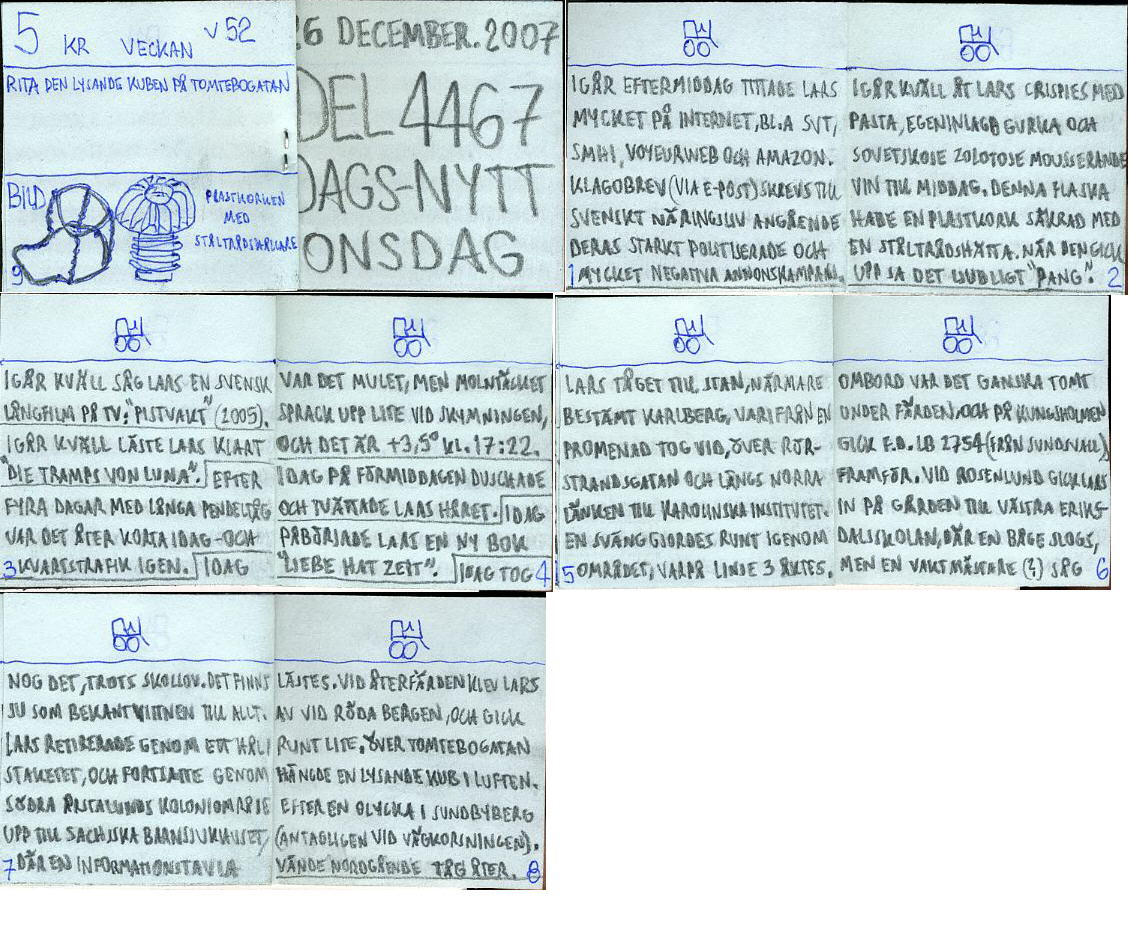 5 KR VECKAN V52
RITA DEN LYSANDE KUBEN PÅ TOMTEBOGATAN
BILD
PLASTKORKEN
MED
STÅLTRÅDSKRUCARE
9
26 DECEMBER. 2007
DEL 4467
DAGS-NYTT
ONSDAG
IGÅR EFTERMIDDAG TITTADE LARS
MYCKET PÅ INTERNET, BL.A SVT,
SMHI, VOYEURWEB OCH AMAZON.
KLAGOBREV (VIA E-POST) SKREVS TILL
SVENSKT NÄRINGSLIV ANGÅENDE
DERAS STARKT POLITISERADE OCH
1 MYCKET NEGATIVA ANNONSKAMPANJ.
IGÅR KVÄLL ÅT LARS CRISPIES MED
PASTA, EGENINLAGD GURKA OCH
SOVETSKOJE ZOLOTOJE MOUSSERANDE
VIN TILL MIDDAG. DENNA FLASKA
HADE EN PLASTKORK SÄKRAD MED
EN STÅLTRÅDSHÄTTA. NÄR DEN GICK
UPP SA DET LJUDLIGT "PANG". 2
IGÅR KVÄLL SÅG LARS EN SVENSK
LÅNGFILM PÅ TV: "PISTVAKT" (2005).
IGÅR KVÄLL LÄSTE LARS KLART
"DIE TRAMPS VON LUNA". EFTER
FYRA DAGAR MED LÅNGA PENDELTÅG
VAR DET ÅTER KORTA IDAG - OCH
3 KVARTSTRAFIK IGEN. IDAG
VAR DET MULET, MEN MOLNTÄCKET
SPRACK UPP LITE VID SKYMNINGEN,
OCH DET ÄR +3,5° KL. 17:22.
IDAG PÅ FÖRMIDDAGEN DUSCHADE
OCH TVÄTTADE LARS HÅRET. IDAG
PÅBÖRJADE LARS EN NY BOK
"LIEBE HAT ZEIT". IDAG TOG 4
LARS TÅGET TILL STAN, NÄRMARE
BESTÄMT KARLBERG, VARIFRÅN EN
PROMENAD TOG VID, ÖVER RÖR-
STRANDSGATAN OCH LÄNGS NORRA
LÄNKEN TILL KAROLINSKA INSTITUTET.
EN SVÄNG GJORDES RUNT IGENOM
5 OMRÅDET, VARPÅ LINJE 3 ÅKTES.
OMBORD VAR DET GANSKA TOMT
UNDER FÄRDEN, OCH PÅ KUNGSHOLMEN
GICK F.D. LB 2754 (FRÅN SUNDSVALL)
FRAMFÖR. VID ROSENLUND GICK LARS
IN PÅ GÅRDEN TILL VÄSTRA ERIKS-
DALSSKOLAN, DÄR EN BÅGE SLOGS,
MEN EN VAKTMÄSTARE (?) SÅG 6
NOG DET, TROTS SKOLLOV. DET FINNS
JU SOM BEKANT VITTNEN TILL ALLT.
LARS RETIRERADE GENOM ETT HÅL I
STAKETET, OCH FORTSATTE GENOM
SÖDRA ÅRSTALUNDS KOLONIOMRÅDE
UPP TILL SACHSSKA BARNSJUKHUSET,
7 DÄR EN INFORMATIONSTAVLA
LÄSTES. VID ÅTERFÄRDEN KLEV LARS
AV VID RÖDA BERGEN, OCH GICK
RUNT LITE. ÖVER TOMTEBOGATAN
HÄNGDE EN LYSANDE KUB I LUFTEN.
EFTER EN OLYCKA I SUNDBYBERG
(ANTAGLIGEN VID VÄGKORSNINGEN).
VÄNDE NORDGÅENDE TÅG ÅTER. 8